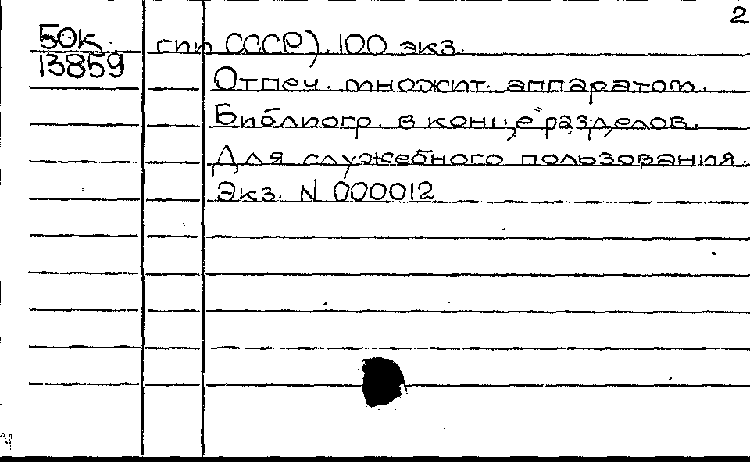 2
50к. гпп СССР). 100 экз.
13859
Отпеч. множит. аппаратом.
Библиогр. в конце разделов.
Для служебного пользования.
Экз. N 000012